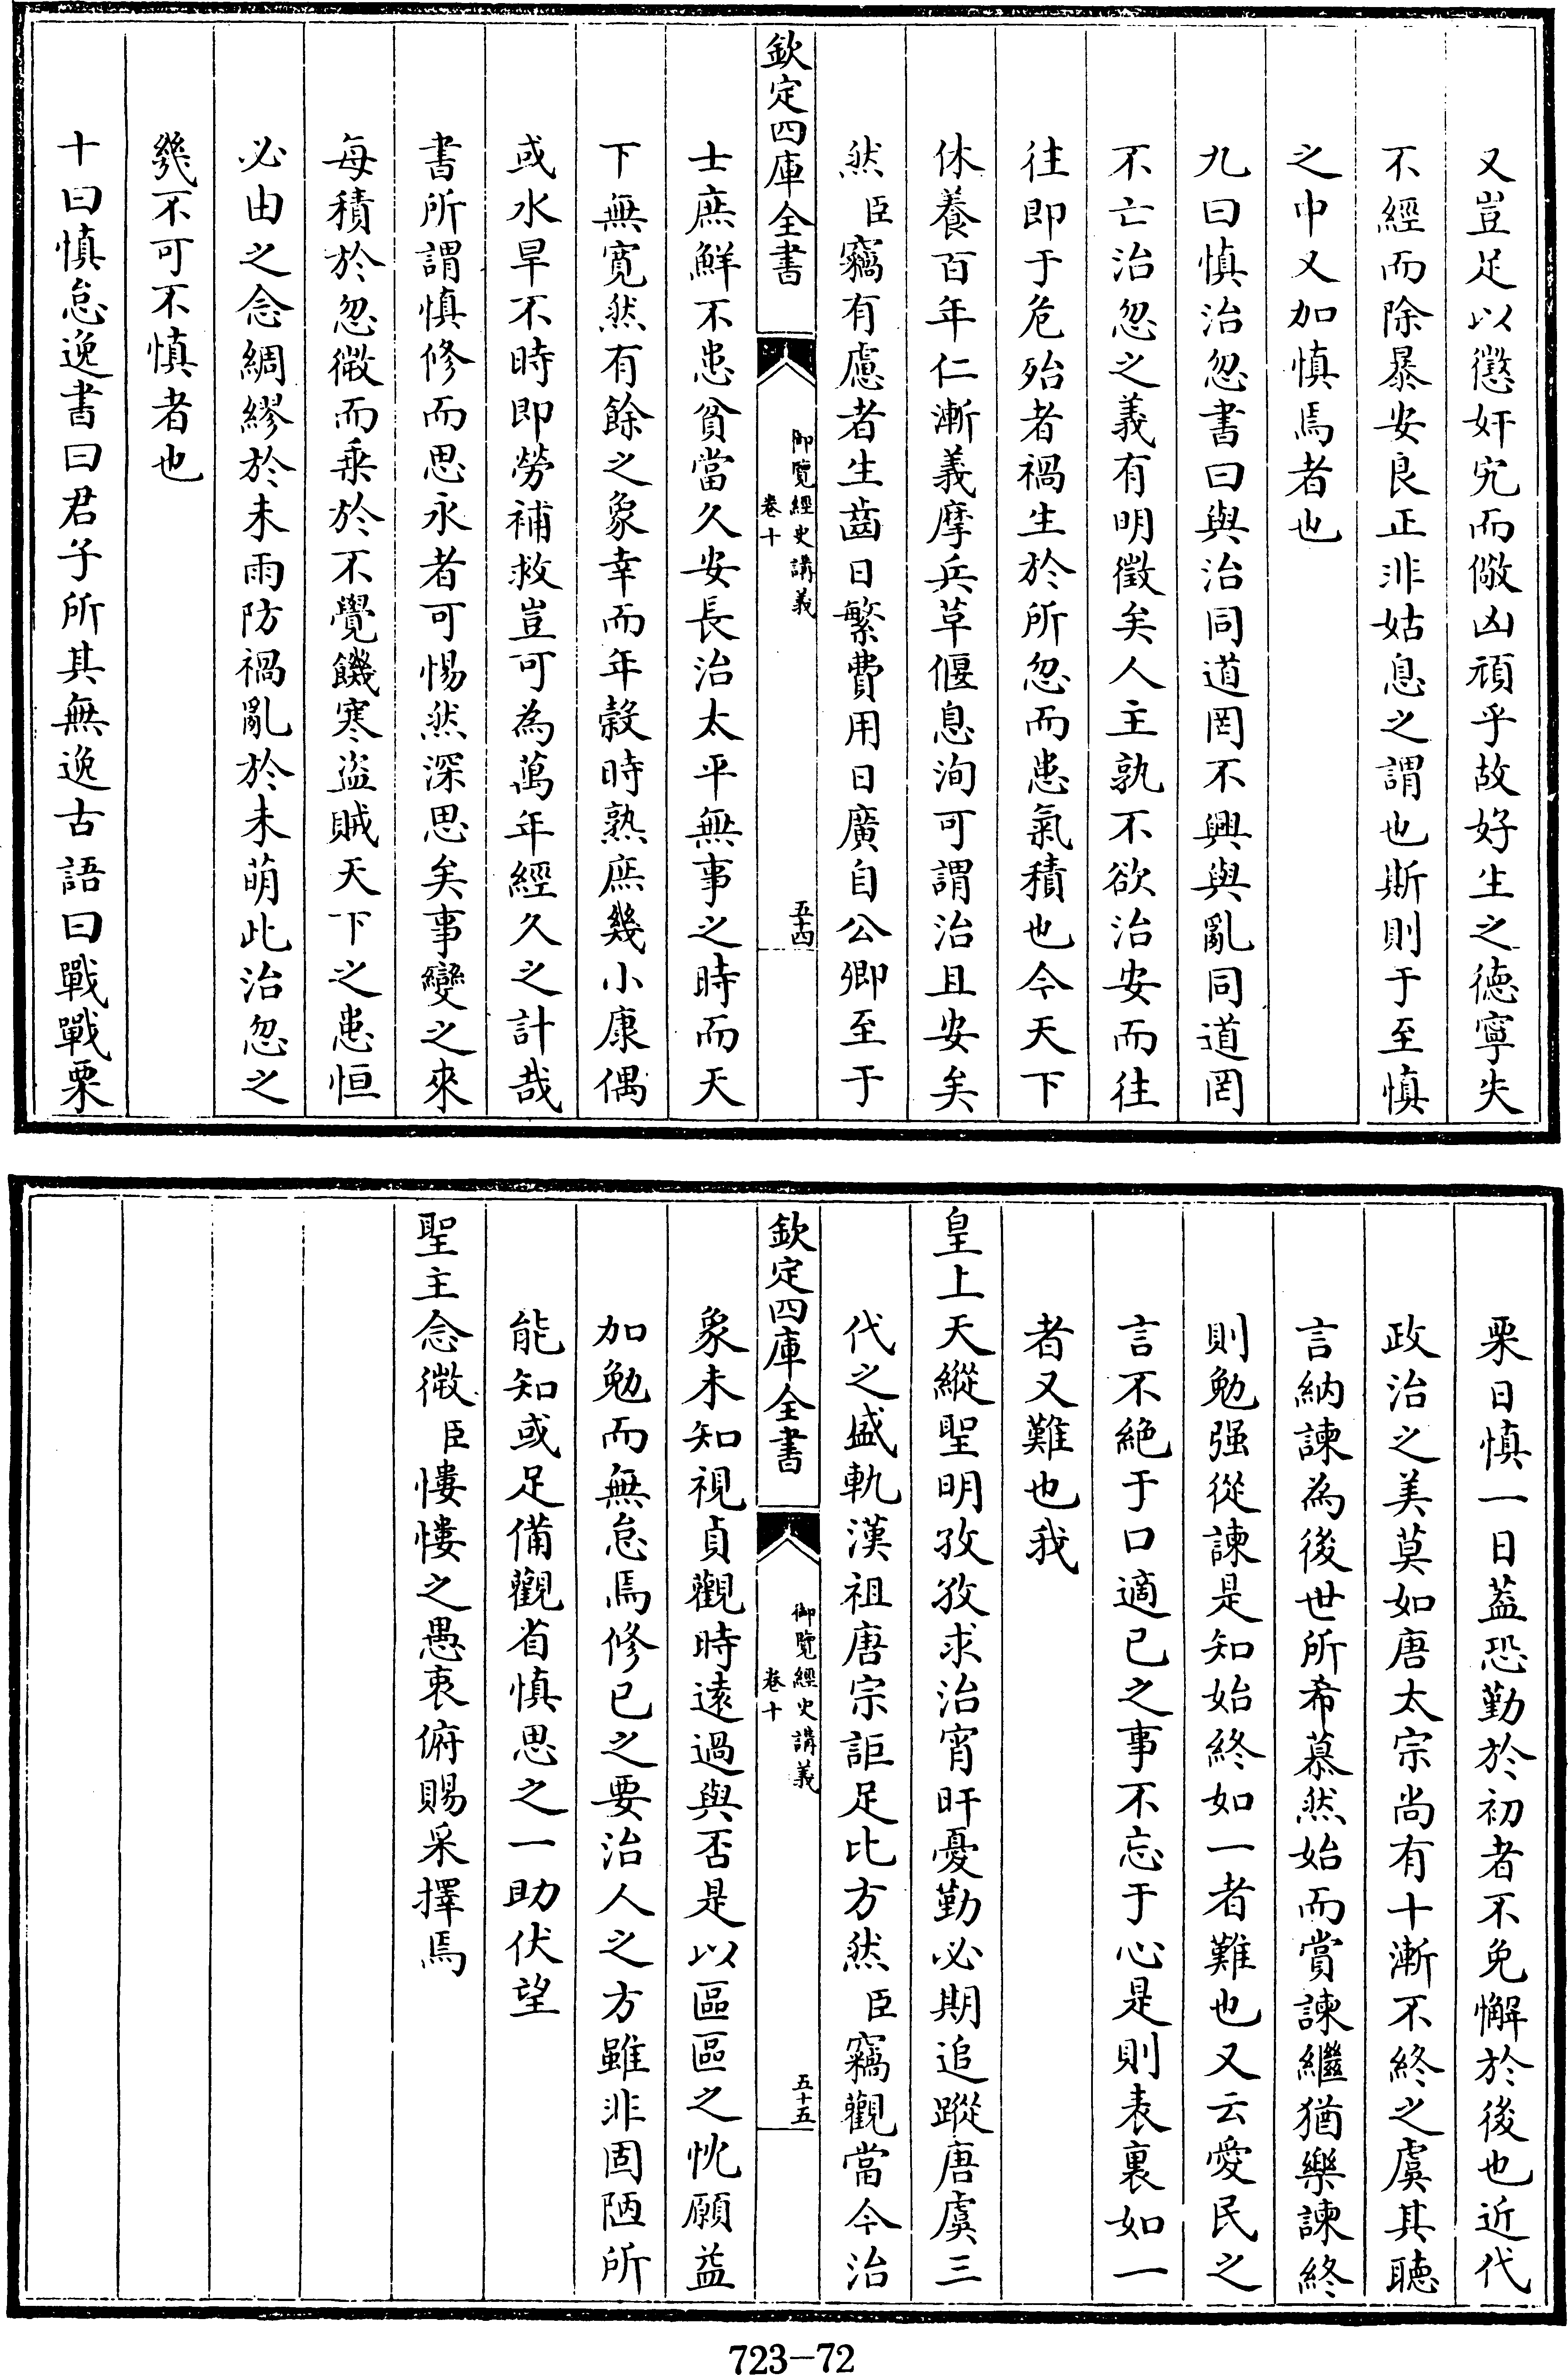 又豈足以懲奸宄而儆凶頑乎故好生之德寧失
不經而除暴安良正非姑息之謂也斯則于至慎
之中又加慎焉者也
九曰慎治忽書曰與治同道罔不興與亂同道罔
不亡治忽之義有明徵矣人主孰不欲治安而往
往即于危殆者禍生於所忽而患氣積也今天下
休養百年仁漸義摩兵革偃息洵可謂治且安矣
然臣竊有慮者生齒日繁費用日廣自公卿至于
欽定四庫全書
御覽經史講義
卷十
五十四
士庶鮮不患貧當久安長治太平無事之時而天
下無寛然有餘之象幸而年榖時熟庶幾小康偶
或水旱不時即勞補救豈可為萬年經久之計哉
書所謂慎修而思永者可惕然深思矣事變之來
每積於忽微而乗於不覺饑寒盜賊天下之患恒
必由之念綢繆於未雨防禍亂於未萌此治忽之
幾不可不慎者也
十曰慎怠逸書曰君子所其無逸古語曰戰戰栗
栗日慎一日葢恐勤於初者不免懈於後也近代
政治之美莫如唐太宗尚有十漸不終之虞其聽
言納諫為後世所希慕然始而賞諫繼猶樂諫終
則勉强從諫是知始終如一者難也又云愛民之
言不絶于口適已之事不忘于心是則表裏如一
者又難也我
皇上天縱聖明孜孜求治宵旰憂勤必期追蹤唐虞三
代之盛軌漢祖唐宗詎足比方然臣竊觀當今治
欽定四庫全書
御覽經史講義
卷十
五十五
象未知視貞觀時遠過與否是以區區之忱願益
加勉而無怠焉修已之要治人之方雖非固陋所
能知或足備觀省慎思之一助伏望
聖主念微臣慺慺之愚衷俯賜采擇焉
723-72